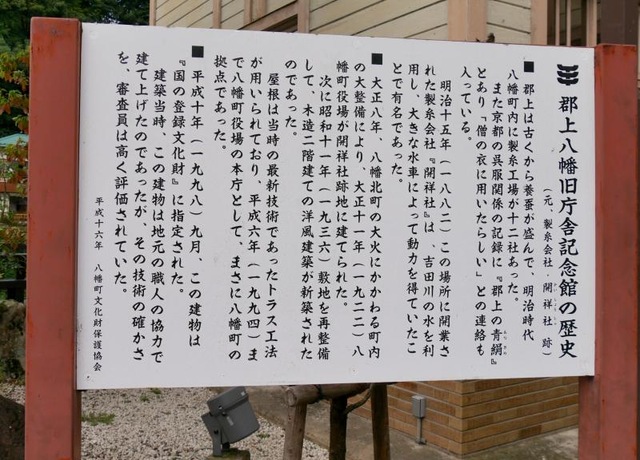 郡上八幡旧庁舎記念館の歴史
(元、製糸会社 開祥社 跡)
■ 郡上は古くから養蚕が盛んで、明治時代
八幡町内に製糸工場が十二社あった。
また京都の呉服関係の記録に『郡上の青絹』
とあり「僧の衣に用いたらしい」との連絡も
入っている。
明治十五年(一八八二)この場所に開業さ
れた製糸会社『開祥社』は、吉田川の水を利
用し、大きな水車によって動力を得ていたこ
とで有名であった。
■ 大正八年、八幡北町の大火にかかわる町内
の大整備により、大正十一年(一九二二)八
幡町役場が開祥社跡地に建てられた。
次に昭和十一年(一九三六)敷地を再整備
して、木造二階建ての洋風建築が新築された
のであった。
屋根は当時の最新技術であったトラス工法
が用いられており、平成六年(一九九四)ま
で八幡町役場の本庁として、まさに八幡町の
拠点であった。
■ 平成十年(一九九八)九月、この建物は
『国の登録文化財』に指定された。
建築当時、この建物は地元の職人の協力で
建て上げたのであったが、その技術の確かさ
を、審査員は高く評価されていた。
平成十六年 八幡町文化財保護協会